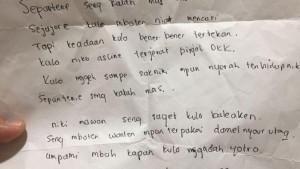 Sepantene seng kalah mas
Sejujure kulo mboten niat mencari
Tapi keadaan kulo bener bener tertekan.
kulo niko asline terjerat pinjol OKK.
Kulo nggeh sampe saknik mpun nyerah
Sepantene seng kalah mas..
niki mawon seng saget kulo balekaken.
Seng mboten wonten mpun terpakai damel nyaur utang.
umpami mboh kapan kulo nggadah yotro.